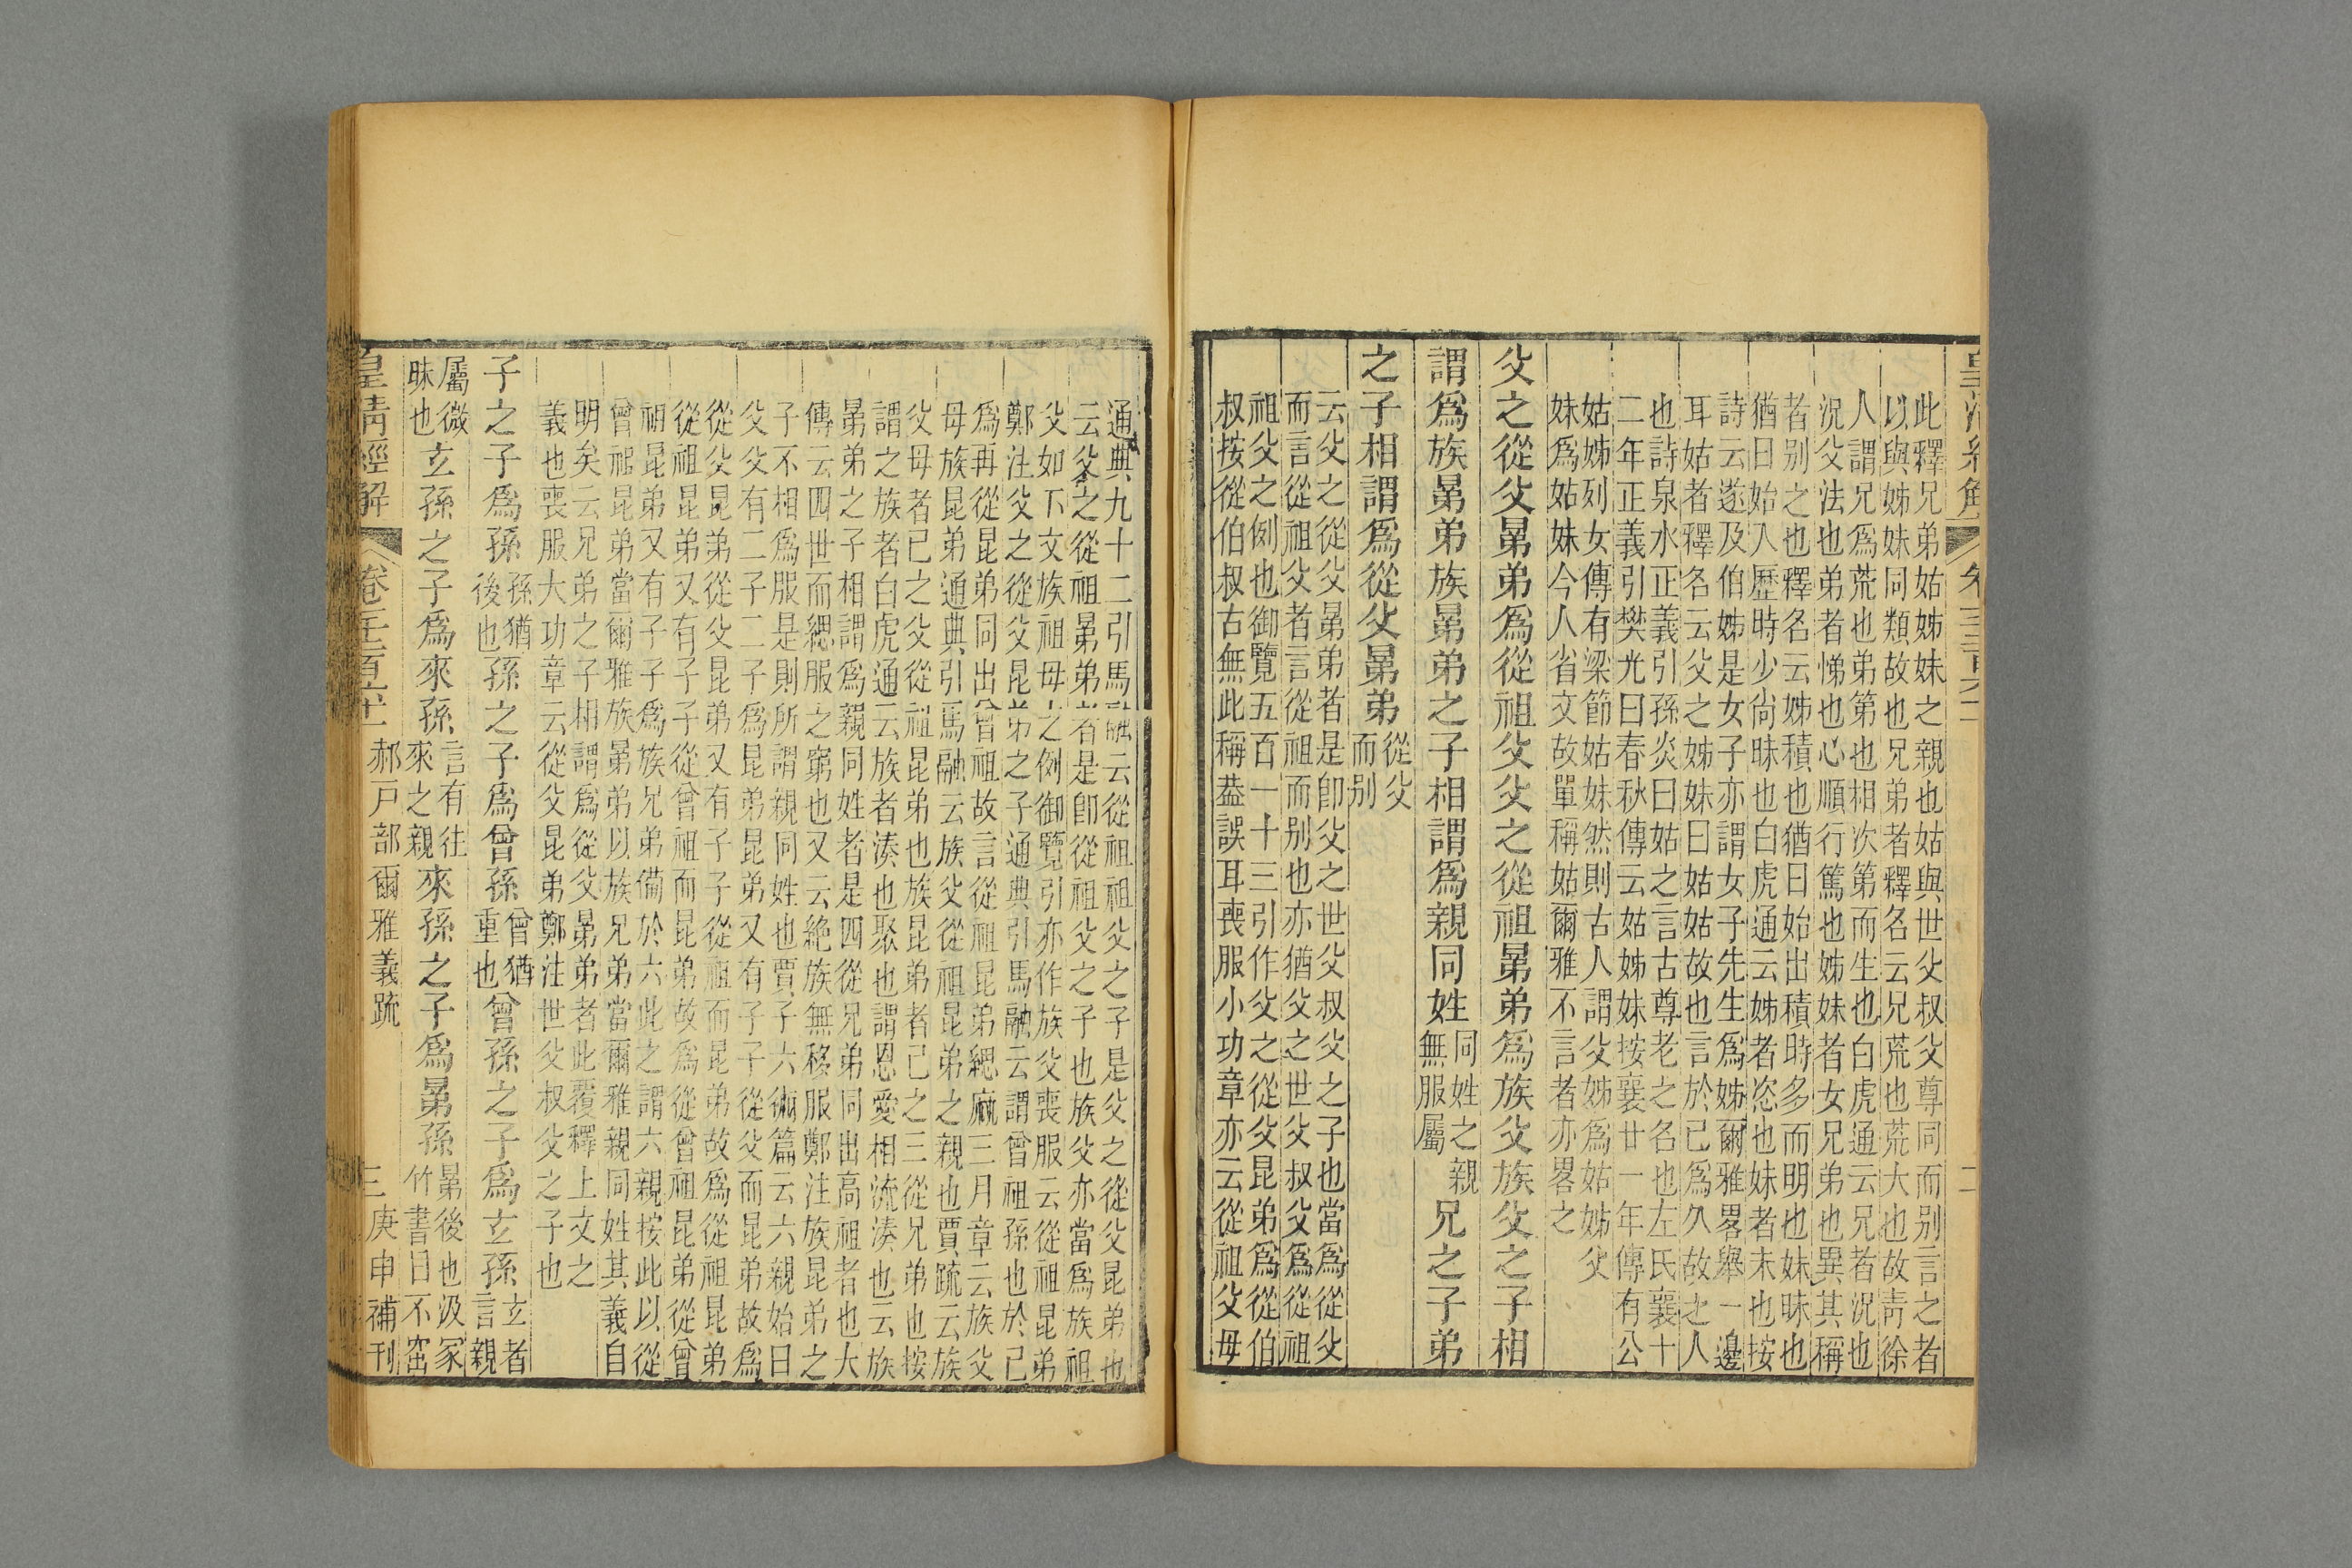 此釋兄弟姑姊妹之親也姑與世父叔父尊同而别言之者
以與姊妹同類故也兄弟者釋名云兄荒也荒大也故靑徐
人謂兄爲荒也弟第也相次第而生也白虎通云兄者況也
況父法也弟者悌也心順行篤也姊妹者女兄弟也異其稱
者别之也釋名云姊積也猶日始出積時多而明也妹昧也
猶日始入歷時少尙昧也白虎通云姊者恣也妹者末也按
詩云遂及伯姊是女子亦謂女子先生爲姊爾雅畧舉一邊
耳姑者釋名云父之姊妹曰姑姑故也言於已爲久故之人
也詩泉水正義引孫炎曰姑之言古尊老之名也左氏襄十
二年正義引樊光曰春秋傳云姑姊妹按襄廿一年傳有公
姑姊列女傳有梁節姑妹然則古人謂父姊爲姑姊父
妹爲姑妹今人省文故單稱姑爾雅不言者亦畧之
父之從父晜弟爲從祖父父之從祖晜弟爲族父族父之子相
謂爲族晜弟族晜弟之子相謂爲親同姓同姓之親無服屬兄之子弟
之子相謂爲從父晜弟從父而别
云父之從父晜弟者是卽父之世父叔父之子也當爲從父
而言從祖父者言從祖而别也亦猶父之世父叔父爲從祖
祖父之例也御覽五百一十三引作父之從父昆弟爲從伯
叔按從伯叔古無此稱葢誤耳喪服小功章亦云從祖父母
通典九十二引馬融云從祖祖父之子是父之從父昆弟也
云父之從祖晜弟者是卽從祖父之子也族父亦當爲族祖
父如下文族祖母之例御覽引亦作族父喪服云從祖昆弟
鄭注父之從父昆弟之子通典引馬融云謂曾祖孫也於己
爲再從昆弟同出曾祖故言從祖昆弟緦麻三月章云族父
母族昆弟通典引馬融云族父從祖昆弟之親也賈疏云族
父母者己之父從祖昆弟也族昆弟者己之三從兄弟也按
謂之族者白虎通云族者湊也聚也謂恩愛相流湊也云族
晜弟之子相謂爲親同姓者是四從兄弟同出高祖者也大
傳云四世而緦服之窮也又云絶族無移服鄭注族昆弟之
子不相爲服是則所謂親同姓也賈子六術篇云六親始曰
父父有二子二子爲昆弟昆弟又有子子從父而昆弟故爲
從父昆弟從父昆弟又有子子從祖而昆弟故爲從祖昆弟
從祖昆弟又有子子從曾祖而昆弟故爲從曾祖昆弟從曾
祖昆弟又有子子爲族兄弟備於六此之謂六親按此以從
曾祖昆弟當爾雅族晜弟以族兄弟當爾雅親同姓其義自
明矣云兄弟之子相謂爲從父晜弟者此覆釋上文之
義也喪服大功章云從父昆弟鄭注世父叔父之子也
子之子爲孫孫猶後也孫之子爲曾孫曾猶重也曾孫之子爲玄孫玄者言親
屬微昧也玄孫之子爲來孫言有往來之親來孫之子爲晜孫晜後也汲冢竹書曰不窋
皇淸經解 卷一千二百六十一 郝戸部爾雅義疏 三 庚申補刊